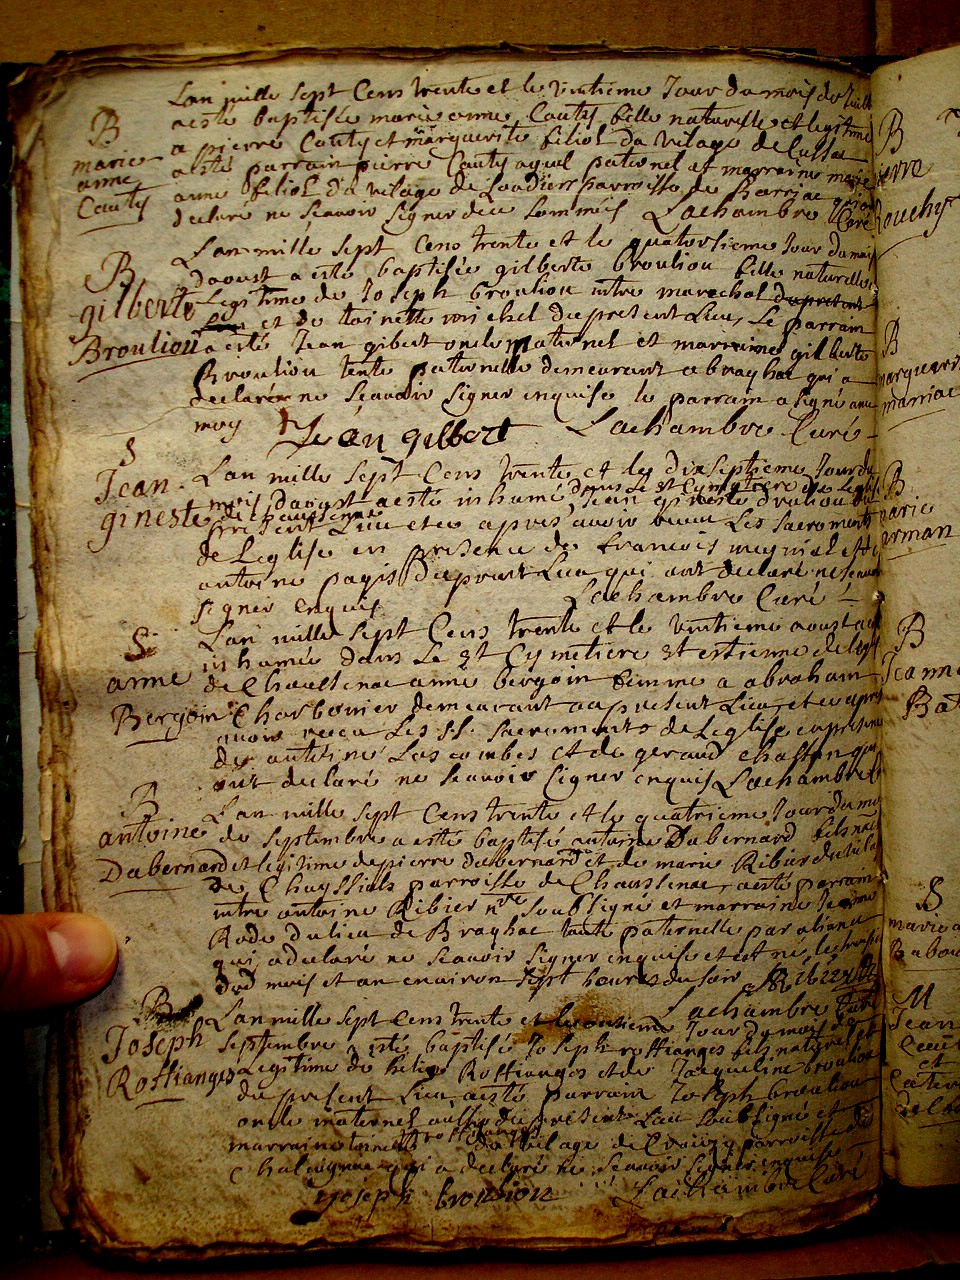 B
marie
anne
Couty
Lan mille sept Cens trente et le vintieme Jour du mois de Juill
a esté baptisée marie anne Couty fille naturelle et legitime
a pierre Couty et marguerite filiol du vilage de
a esté parrain pierre Couty ayeul paternel et marraine marie
anne filiol du vilage de parroisse de Barriac qui ont
declaré ne scavoir signer de ce sommés Lachambre Curé
B
gilberte
Brouliou
Lan mille sept Cens trente et le quatorsieme Jour du mois
daoust a esté baptisée gilberte brouliou fille naturelle
Legitime de Joseph brouliou maréchal
et de toinette michel du present Lieu, Le parrain
a esté Jean gibert oncle maternel et marraine gilberte
Brouliou tente paternelle demeurant a braghac qui a
declaré ne scavoir signer enquise le parrain a signé avec
moy Jean gilbert Lachambre Curé
S
Jean
gineste
Lan mille sept Cens trente et le dixseptieme Jour du
mois daoust a esté inhumé dans le st Cymetiere de Leglise
de Chaussenac Jean gineste
present Lieu et ce apres avoir receu Les sacrements
de Leglise en presence de francois meyniel et d
antoine pagis du present Lieu qui ont declaré ne scavoir
signer enquis Lachambre Curé
S
anne
Bergoin
Lan mille sept Cens trente et le vintieme aoust a esté
inhumée dans Le st Cymetiere st estienne de legl
de Chaussenac anne bergoin femme a abraham
Charbonier demeurant au present Lieu, et ce apres
avoir receu Les ss. sacrements de Leglise en presence
de antoine Lascombes et de geraud chastang qui
ont declaré ne scavoir signer enquis Lachambre C
B
antoine
Dabernard
Lan mille sept Cens trente et le quatrieme Jour du mois
de septembre a esté baptisé antoine Dabernard fils na
et legitime de pierre dabernard et de marie Ribier du vila
de Chayssials parroisse de Chaussenac, a esté parrain
antoine Ribier nre soubsigné et marraine Jeanne
Rode du lieu de Braghac tante paternelle par aliance
qui a declaré ne scavoir signer enquise et est né
dud mois et an environ sept heures du soir Ribier
Lachambre Curé
B
Joseph
Roffianges
Lan mille sept Cens trente et le onsieme Jour du mois de
septembre a esté baptisé Joseph roffianges fils naturel et
Legitime de helie Roffianges et de Jacqueline brouliou
du present Lieu, a esté parrain Joseph brouliou
oncle maternel aussy du present Lieu soubsigné et
marraine toinette roffianges du vilage de parroisse de
Chalvignac qui a declaré ne scavoir signer enquise
Joseph brouliou Lachambre Curé
B
ierre
Rouchy
B
marguerit
marriac
B
marie
arman
B
Jeanne
Bat
S
marie a
Babou
M
Jean
et
Cater